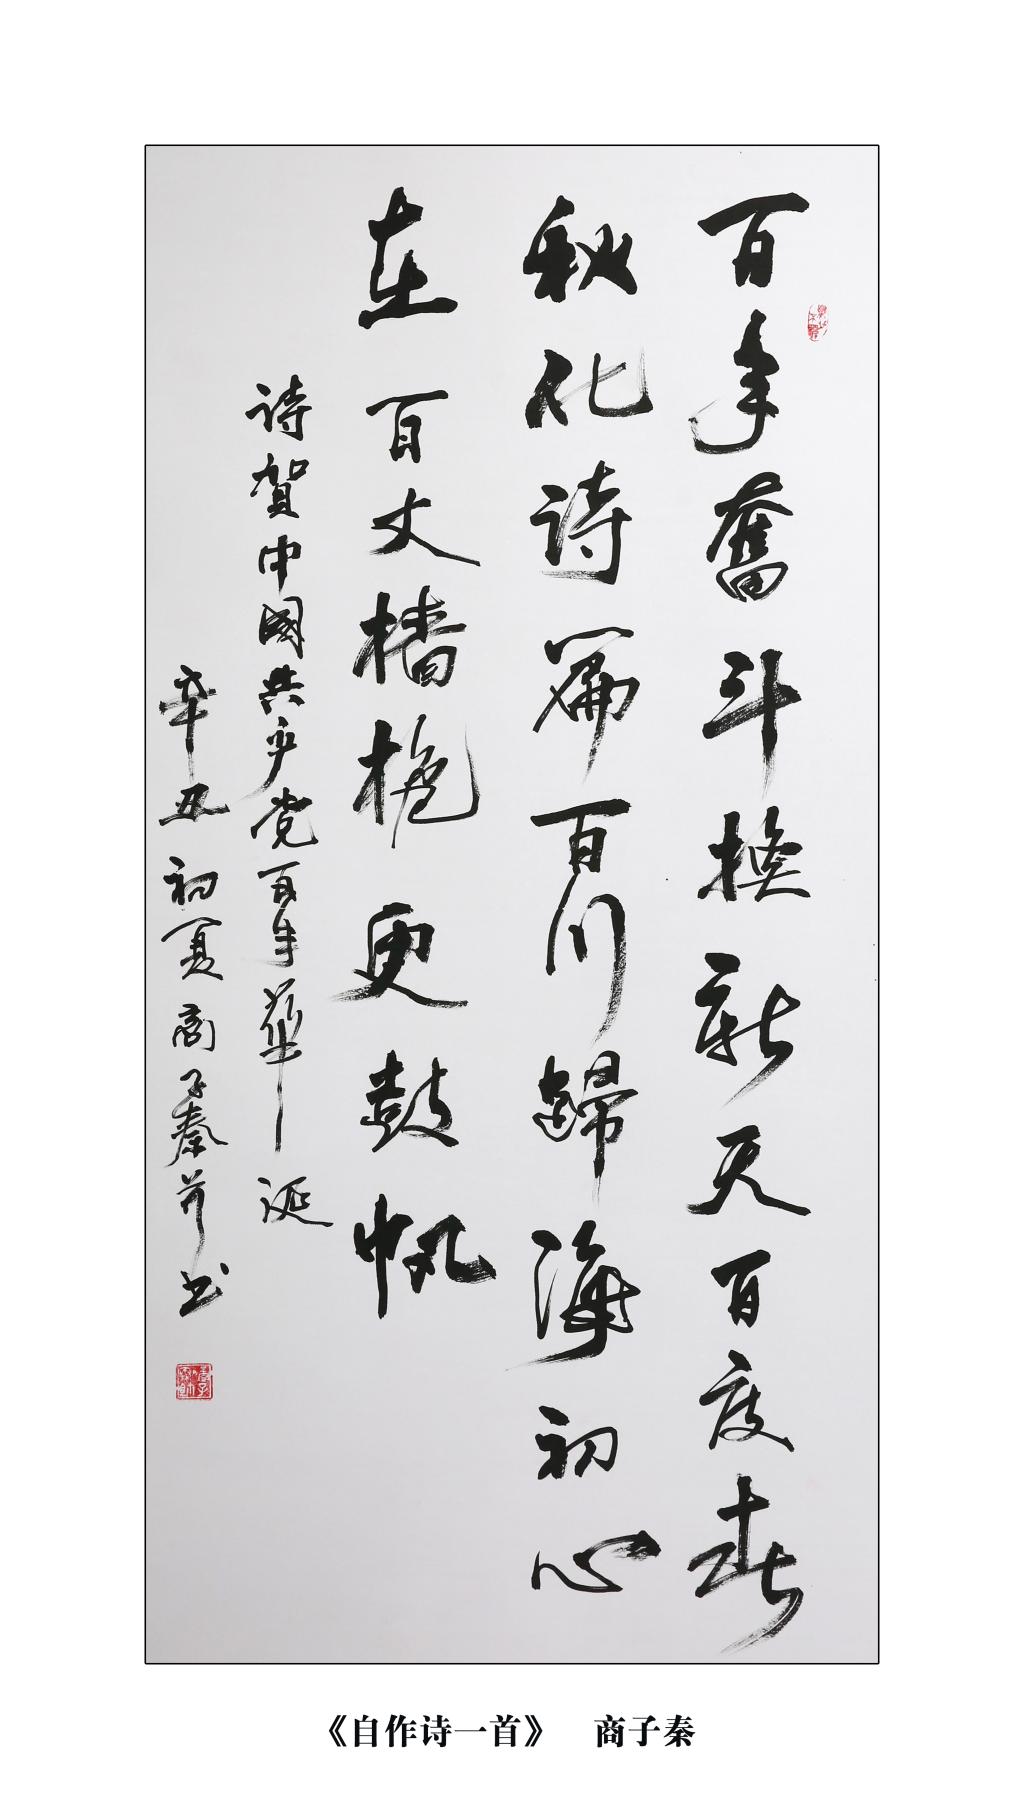 百年奮斗換新天百度春
秋化诗篇百川歸海初心
在百丈檣桅更鼓帆
诗賀中國共产党百年華诞
辛丑初夏商子秦并书
《自作诗一首》 商子秦